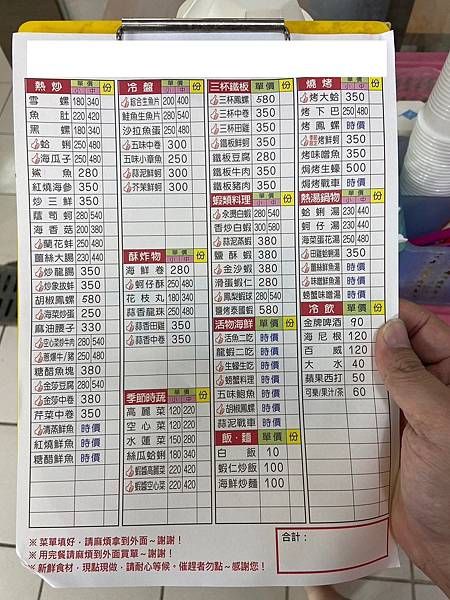 熱炒 單價 小 中 份
雪螺 180 340
魚肚 220 420
黑螺 180 340
蛤蜊 250 480
海瓜子 250 480
鯊魚 280
紅燒海參 350
炒三鮮 350
蘿司蚵 280 540
海香菇 200 380
蘭花蚌 250 480
薑絲大腸 230 440
炒龍腸 350
炒象拔蚌 350
胡椒鳳螺 580
海菜炒蛋 250
麻油腰子 330
空心菜炒牛肉 280 540
蔥爆牛/豬 250 480
糖醋魚塊 380
金莎豆腐 280 540
金莎中卷 380
芹菜中卷 350
清蒸鮮魚 時價
紅燒鮮魚 時價
糖醋鮮魚 時價
冷盤 單價 小 中 份
綜合生魚片 200 400
鮭魚生魚片 280 540
沙拉魚蛋 250 480
五味中卷 300
五味小章魚 250
蒜泥鮮蚵 300
芥茉鮮蚵 300
酥炸物 單價 小 中 份
海鮮卷 280
蚵仔酥 250 480
花枝丸 180 340
蒜香龍珠 250 480
蒜香田雞 350
蒜香中卷 350
季節時蔬 單價 小 中 份
高麗菜 120 220
空心菜 120 220
水蓮菜 150 280
絲瓜蛤蜊 180 340
蝦醬高麗菜 220 420
蝦醬空心菜 220 420
三杯鐵板 單價 份
三杯鳳螺 580
三杯中卷 350
三杯田雞 350
鐵板鮮蚵 350
鐵板豆腐 280
鐵板牛肉 350
鐵板豬肉 350
蝦類料理 單價 小 中 份
汆燙白蝦 280 540
香炒白蝦 300 580
蒜泥蒸蝦 380
鹽酥蝦 380
金沙蝦 380
滑蛋蝦仁 280
鳳梨蝦球 280 540
鹽烤泰國蝦 580
活物海鮮 單價 份
活魚二吃 時價
龍蝦二吃 時價
生蠔生吃 時價
螃蟹料理 時價
五味鮑魚 時價
胡椒鳳螺 時價
蒜泥戰車 時價
飯.麵 單價 份
白飯 10
蝦仁炒飯 100
海鮮炒麵 100
燒烤 單價 小 中 份
烤大蛤 350
烤下巴 250 480
烤鳳螺 時價
烤鮮蚵 350
烤味噌魚 350
焗烤生蠔 500
焗烤戰車 時價
熱湯鍋物 單價 小 中 份
蛤蜊湯 230 440
蚵仔湯 230 440
海菜蛋花湯 250 480
田雞蛤蜊湯 350
薑絲鮮魚湯 時價
味噌鮮魚湯 時價
螃蟹味噌湯 時價
冷飲 單價 份
金牌啤酒 90
海尼根 120
百威 120
大水 40
蘋果西打 50
可樂/果汁/茶 60
合計：
※菜單填好，請麻煩拿到外面～謝謝！
※用完餐請麻煩到外面買單～謝謝!
※新鮮食材，現點現做，請耐心等候。催趕者勿點～感謝您！